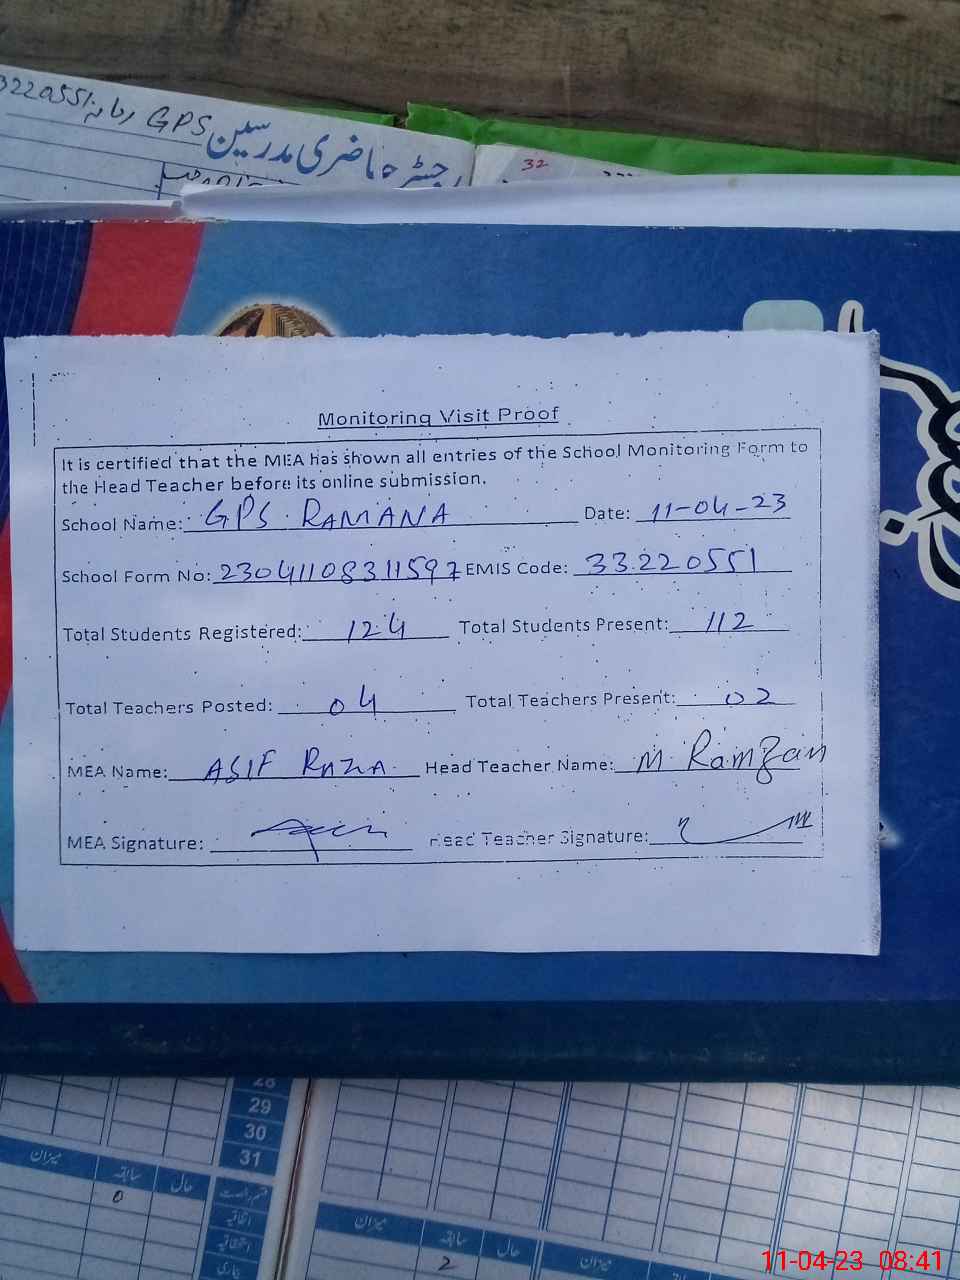 GPS رمانہ 33220551
رجسٹر حاضری مدرسین
32
Monitoring Visit Proof
It is certified that the MEA has shown all entries of the School Monitoring Form to
the Head Teacher before its online submission.
School Name: GPS. RAMANA Date: 11-04-23
School Form No: 23041108311597 EMIS Code: 33220551
Total Students Registered: 124 Total Students Present: 112
Total Teachers Posted: 04 Total Teachers Present: 02
MEA Name: ASIF RAZA Head Teacher Name: M. Ramzan
MEA Signature: Head Teacher Signature:
28
29
30
31
میزان سابقہ حال
0
میزان سابقہ حال میزان
2
11-04-23 08:41